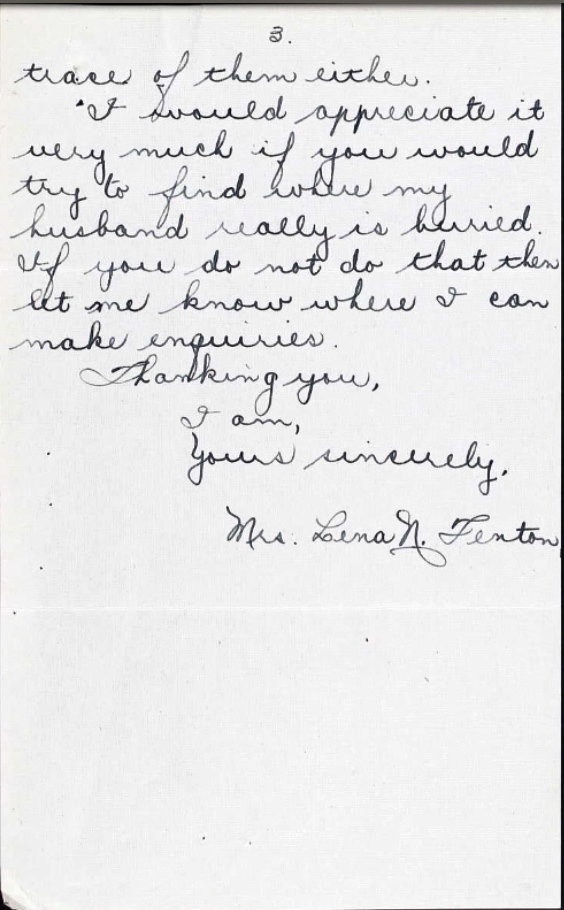 3.
trace of them either.
I would appreciate it
very much if you would
try to find where my
husband really is buried.
If you do not do that then
let me know where I can
make enquiries.
Thanking you,
I am,
Yours sincerely,
Mrs. Lena N. Fenton